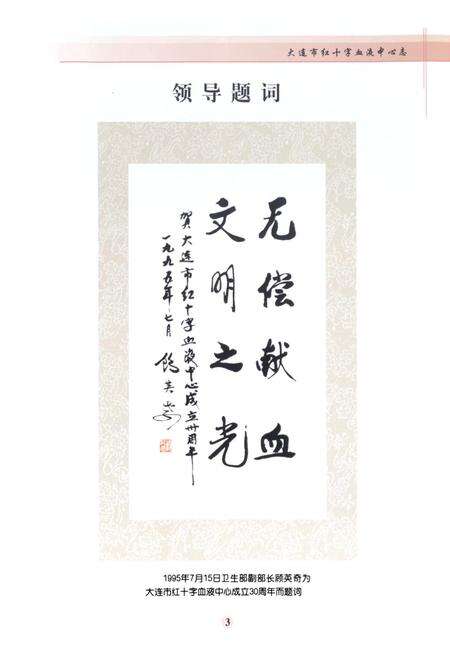 大连市红十字血液中心志
领导题词
无偿献血
文明之光
贺大连市红十字血液中心成立卅周年
一九九五年七月 顾英奇
1995年7月15日卫生部副部长顾英奇为
大连市红十字血液中心成立30周年而题词
3